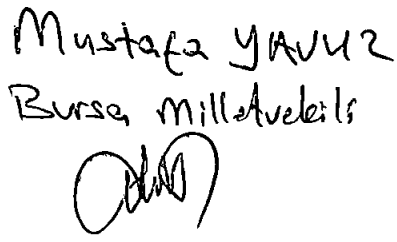 Mustafa YAVUZ
Bursa Milletvekili